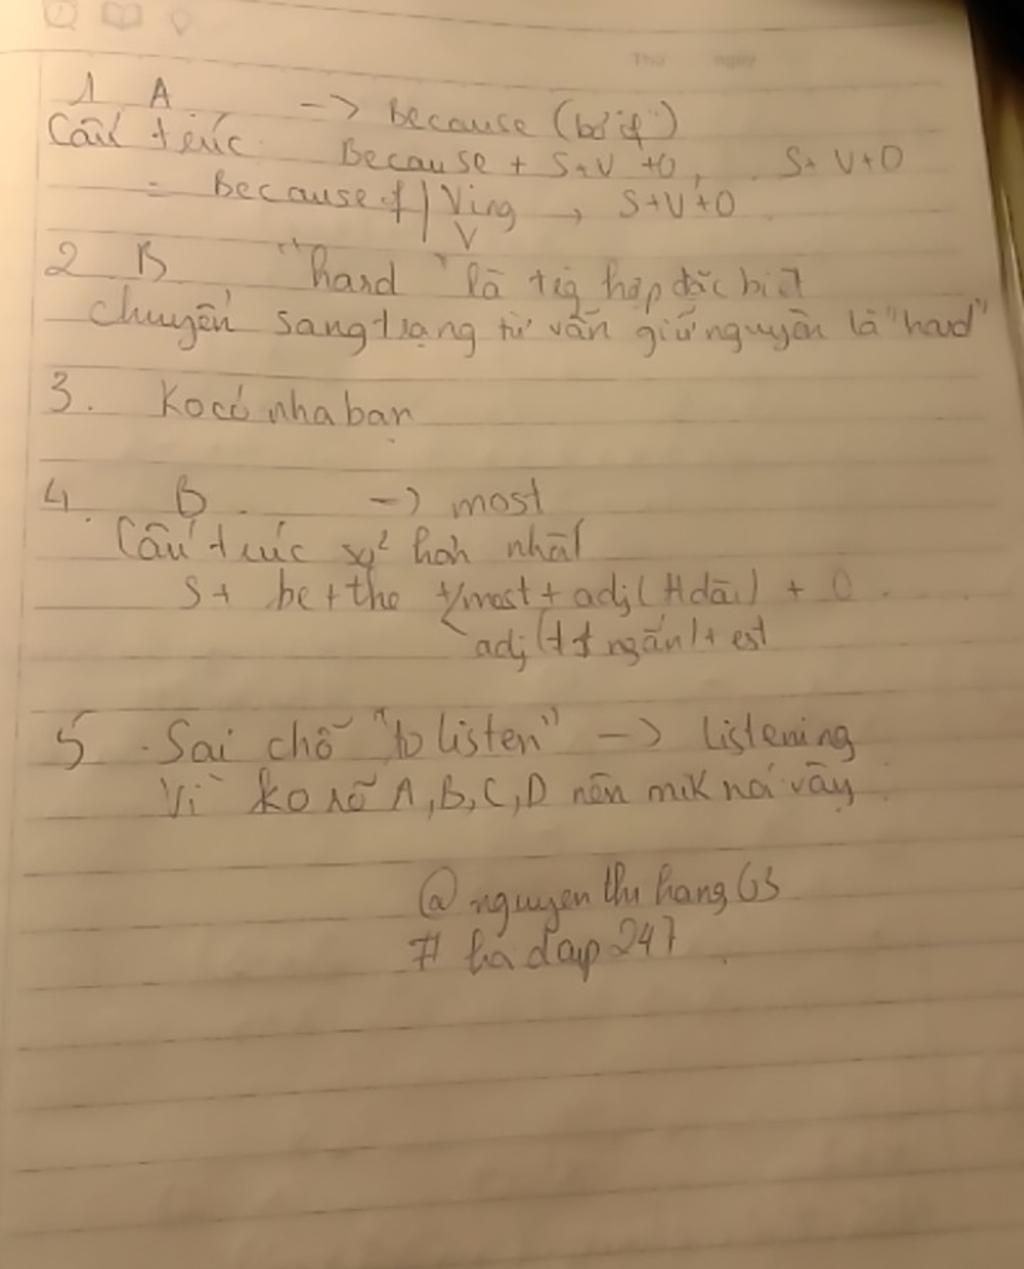 Thứ ngày
1 A -> Because (bởi)
Cấu trúc Because + S+V+O, S+V+O
= Because of | Ving , S+V+O
V
2 B "hard" là trg hợp đặc biệt
chuyển sang trạng từ vẫn giữ nguyên là "hard"
3. Ko có nha bạn
4. B -> most
Cấu trúc so² hơn nhất
S+ be+the +/most + adj(tt dài) + O
adj (tt ngắn)+ est
5 . Sai chỗ "to listen" -> listening
Vì ko rõ A,B,C,D nên mik nói vậy
@nguyenthuhang63
# hoidap247